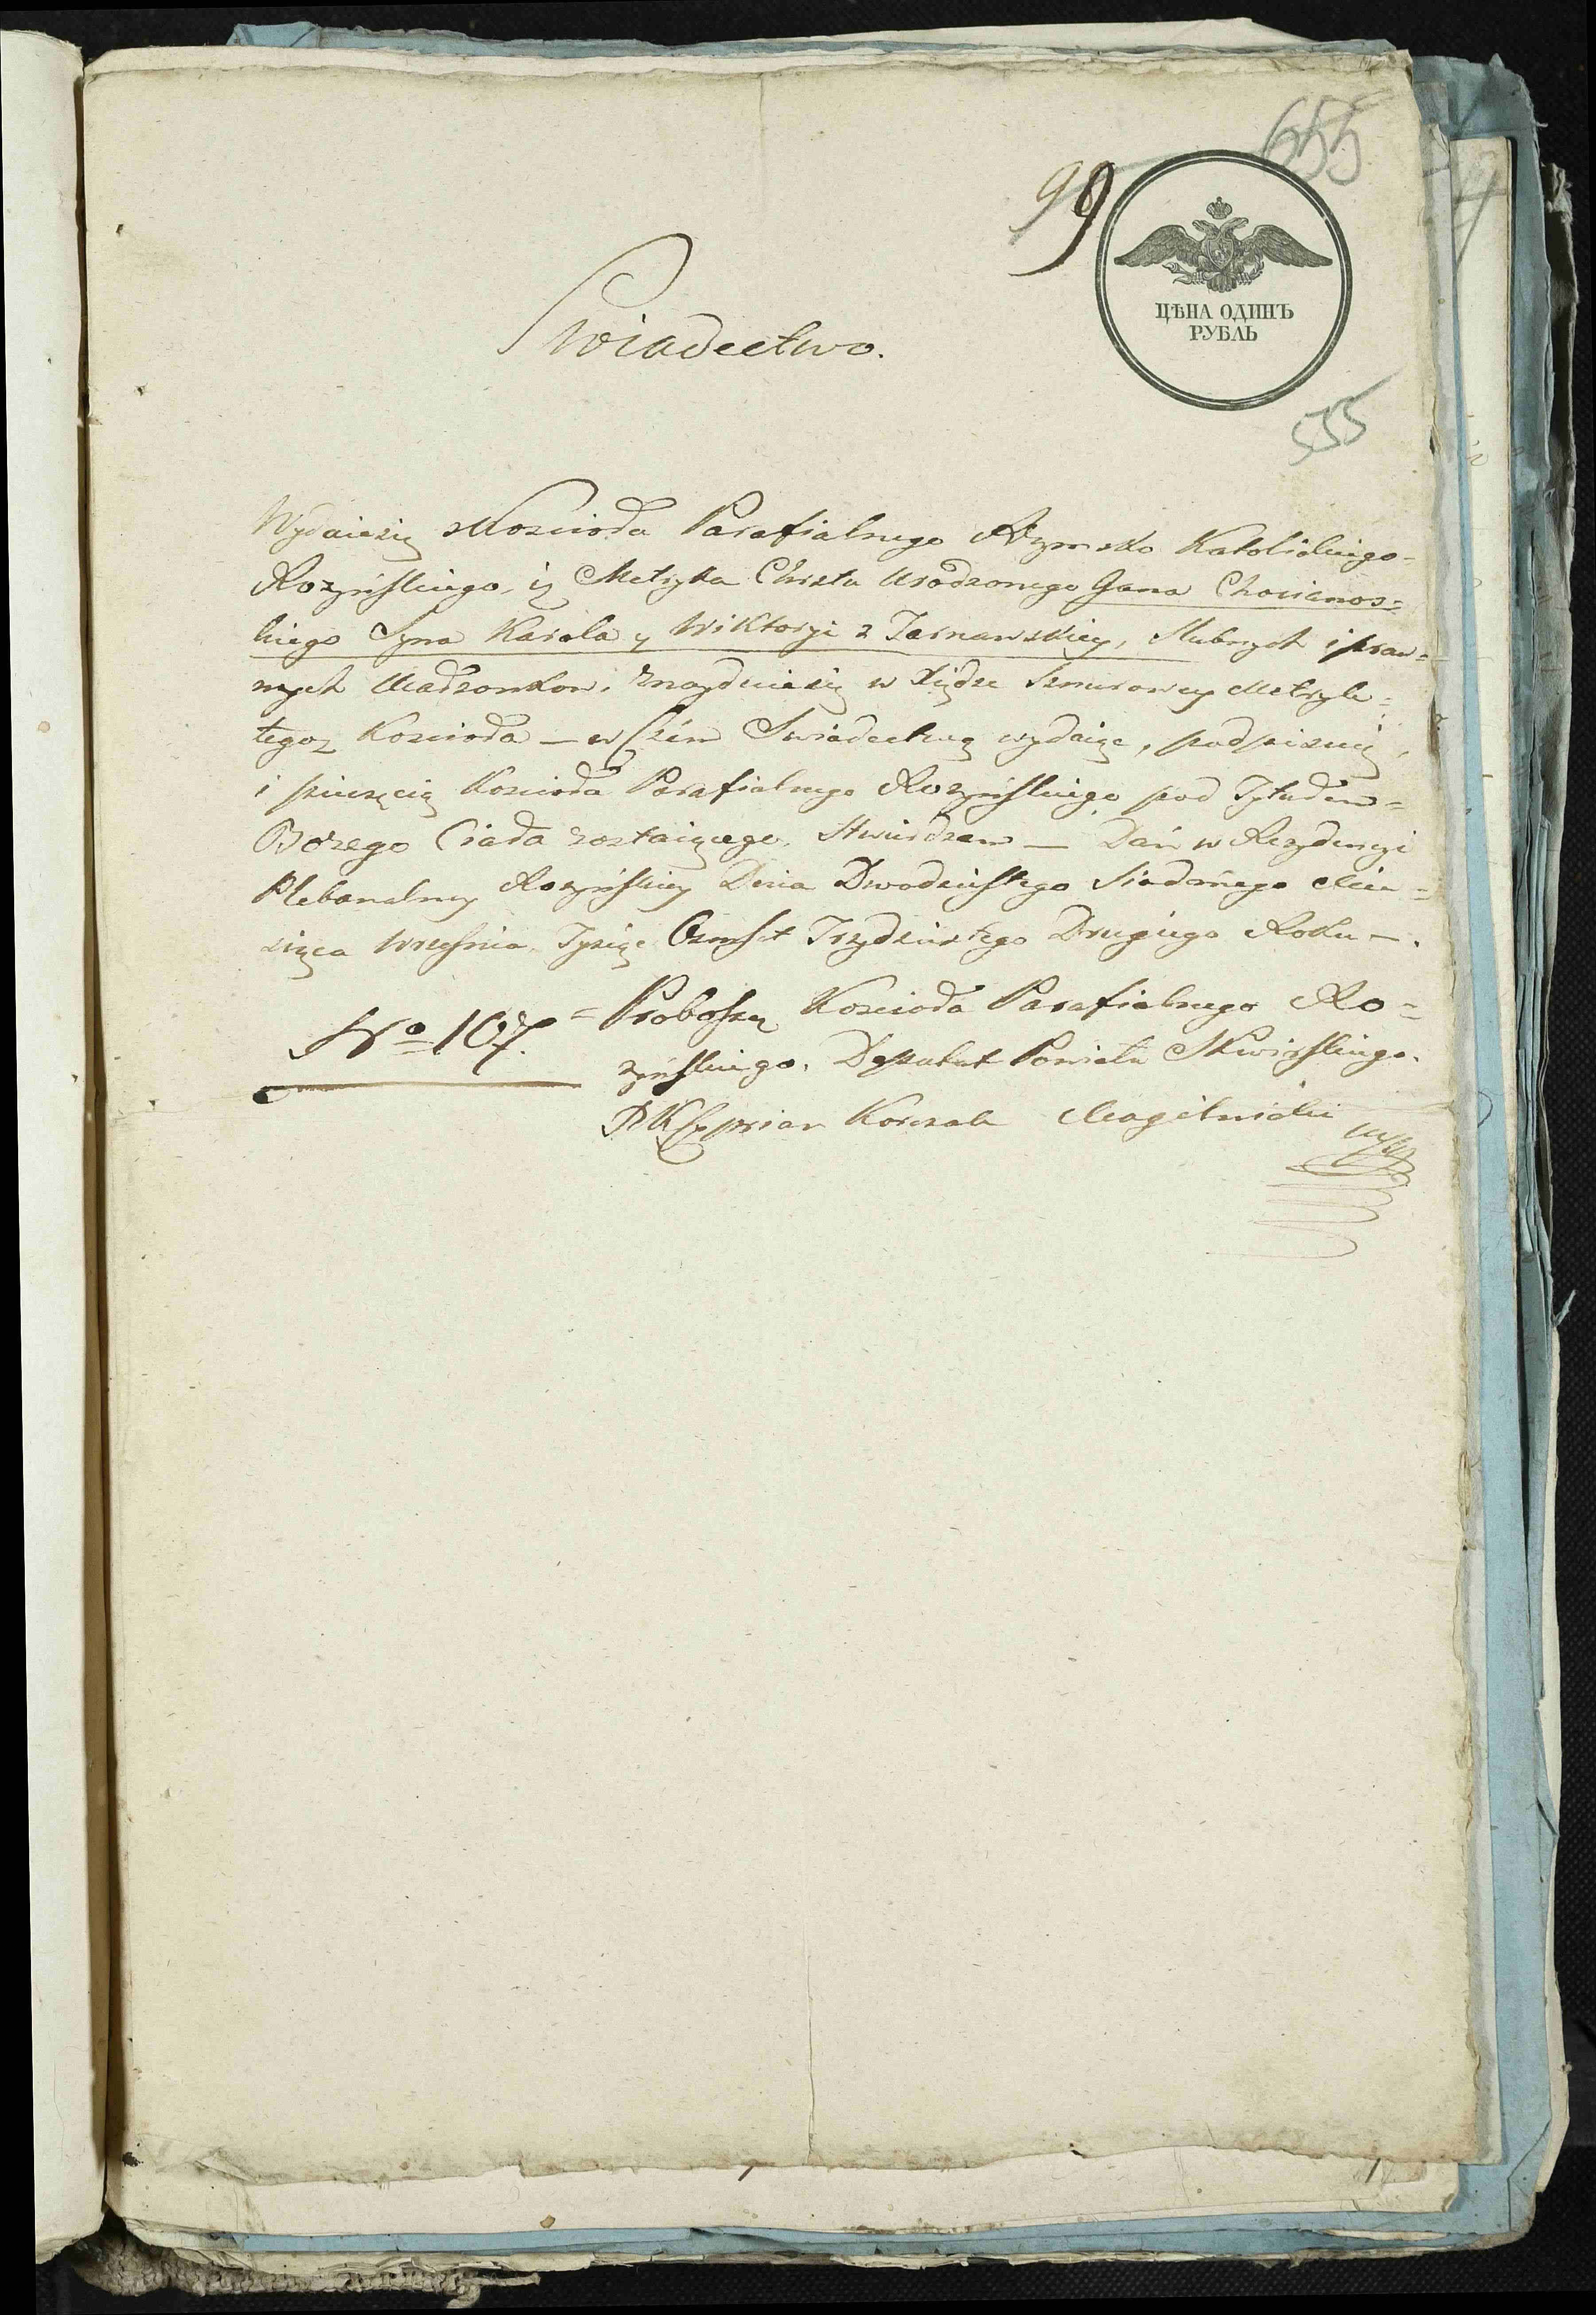 655
99
ЦѢНА ОДИНЪ
РУБЛЬ
Swiadectwo.
555
Wydaiesię z Koscioła Parafialnego Rzymsko Katolickiego
Rozyńskiego, iż Metryka Chrztu Urodzonego Jana Chocianos=
kiego Syna Karola y Wiktoryi z Tarnawskiey, Slubnych i praw=
nych Małżonkow, znayduiesię w Xiędze Sznurowey Metryk=
tegoż Koscioła — w Czém Swiadectwo wydaiąc, podpisuię,
i pieczęcią Koscioła Parafialnego Rozyńskiego pod Tytułem=
Bożego Ciała zostaiącego, Stwierdzam — Dań w Rezydencyi
Plebanalney Rozyńskiey Dnia Dwodziestego Siodmego Mie=
siąca Wrzesnia, Tysiąc Ośmset Trzydziestego Drugiego Roku —.
No 107.
= Proboszcz Koscioła Parafialnego Ro=
zyńskiego, Deputat Powiatu Skwirskiego.
X Cyprian Korczak Mogilnicki